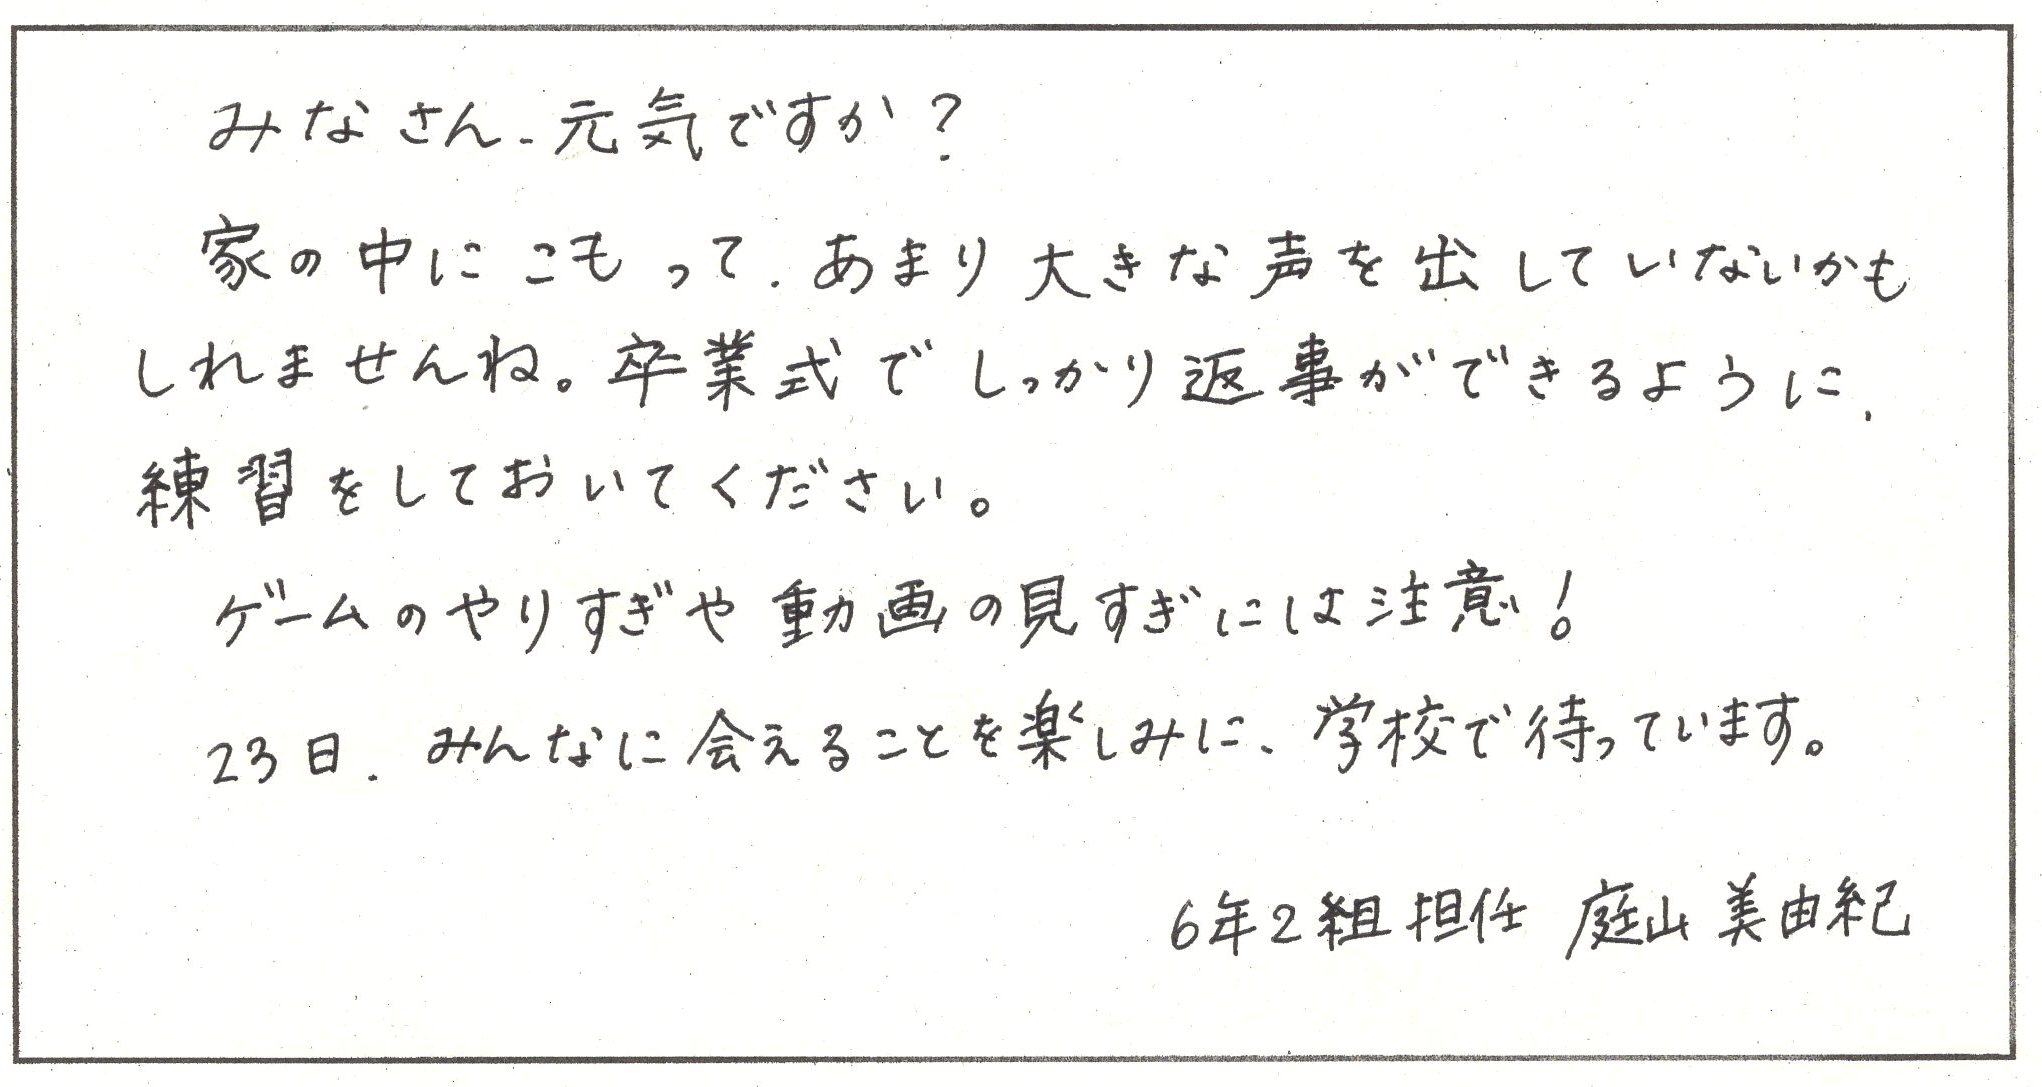 みなさん、元気ですか?
家の中にこもって、あまり大きな声を出していないかも
しれませんね。卒業式でしっかり返事ができるように、
練習をしておいてください。
ゲームのやりすぎや動画の見すぎには注意!
23日、みんなに会えることを楽しみに、学校で待っています。
6年2組担任 庭山美由紀